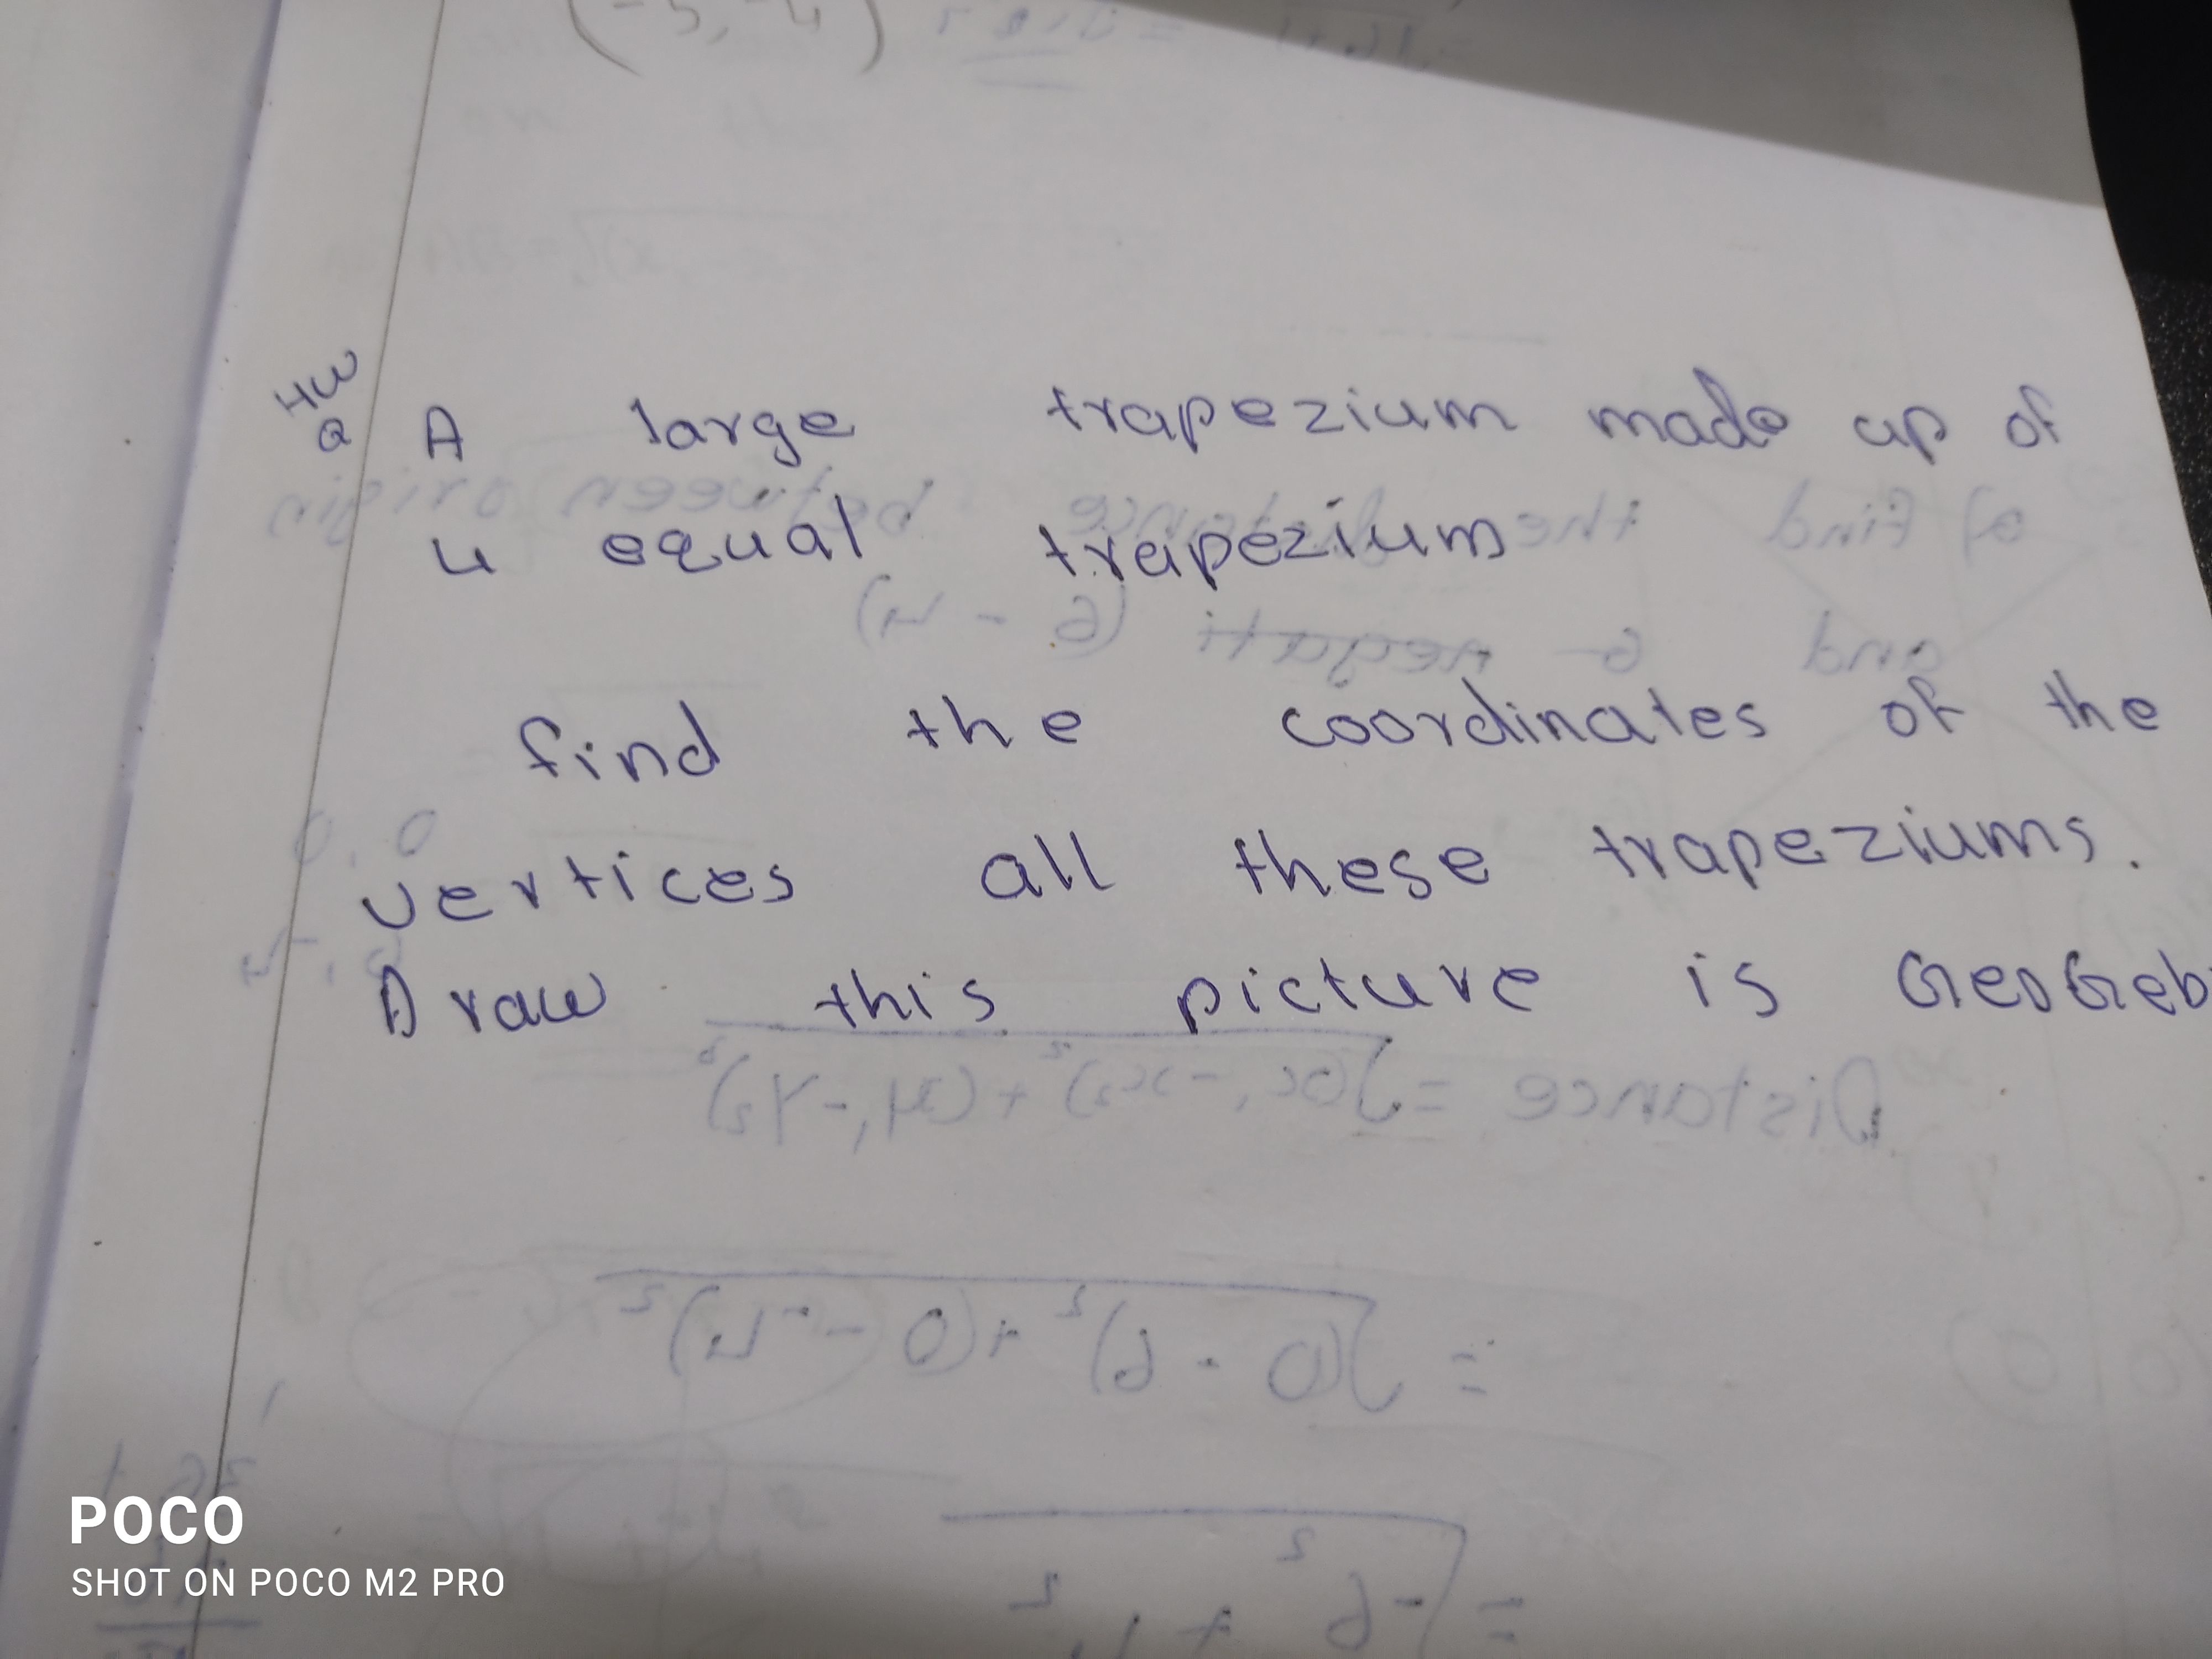 (-5, -4)
HW
Q A large trapezium made up of
4 equal trapezium
find the coordinates of the
vertices all these trapeziums.
Draw this picture is GeoGeb
POCO
SHOT ON POCO M2 PRO